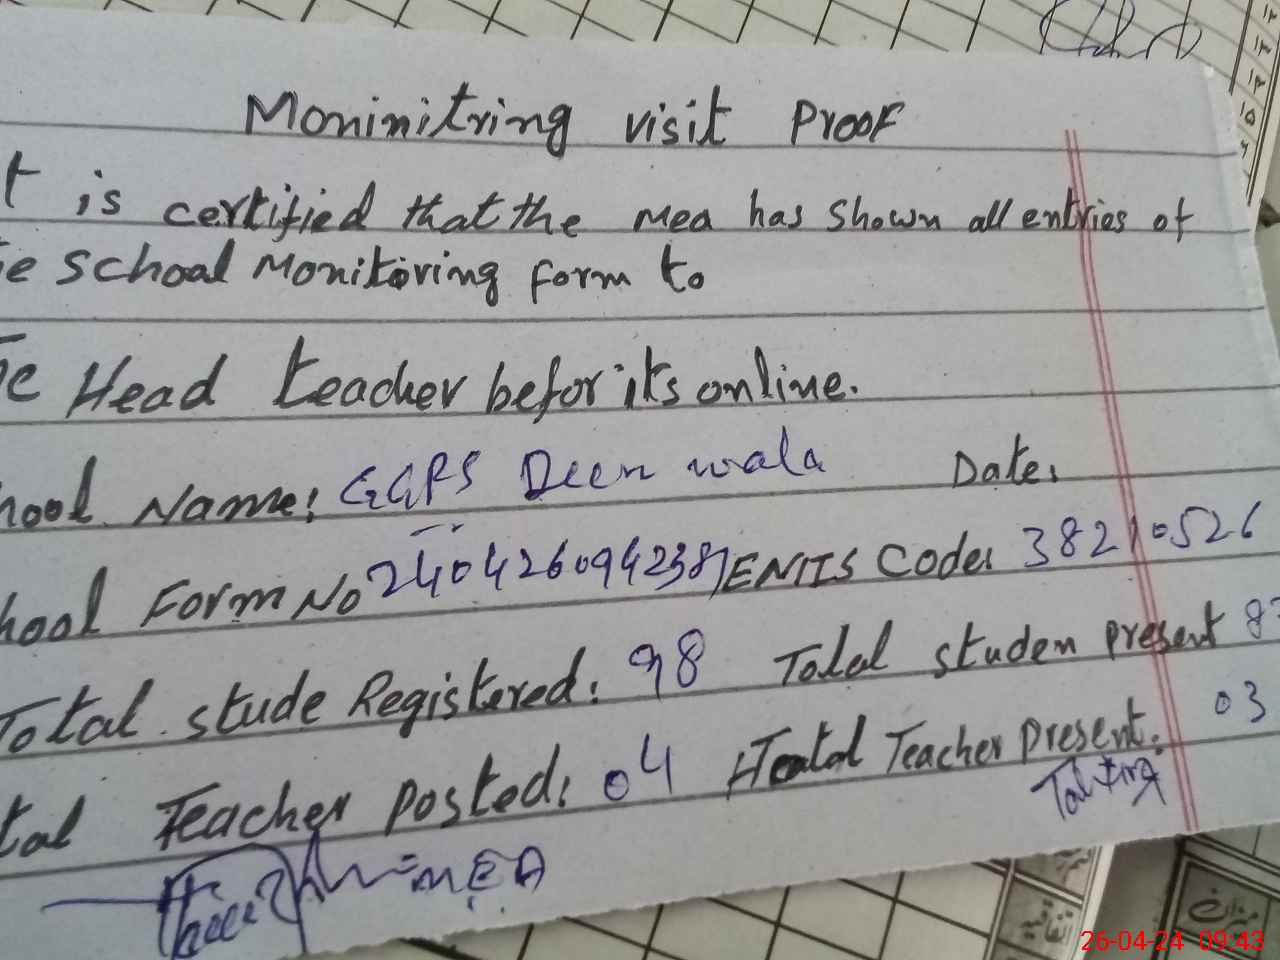 Moninitring visit Proof
t is certified that the Mea has shown all entries of
e School Monitoring form to
e Head teacher befor its online.
hool Name: GGPS Deen wala Date:
hool Form No 240426094238 EMIS Code: 38210526
Total stude Registered: 98 Total studen present 8
tal Teacher Posted: 04 Teacher Present: 03
MEA
26-04-24 09:43